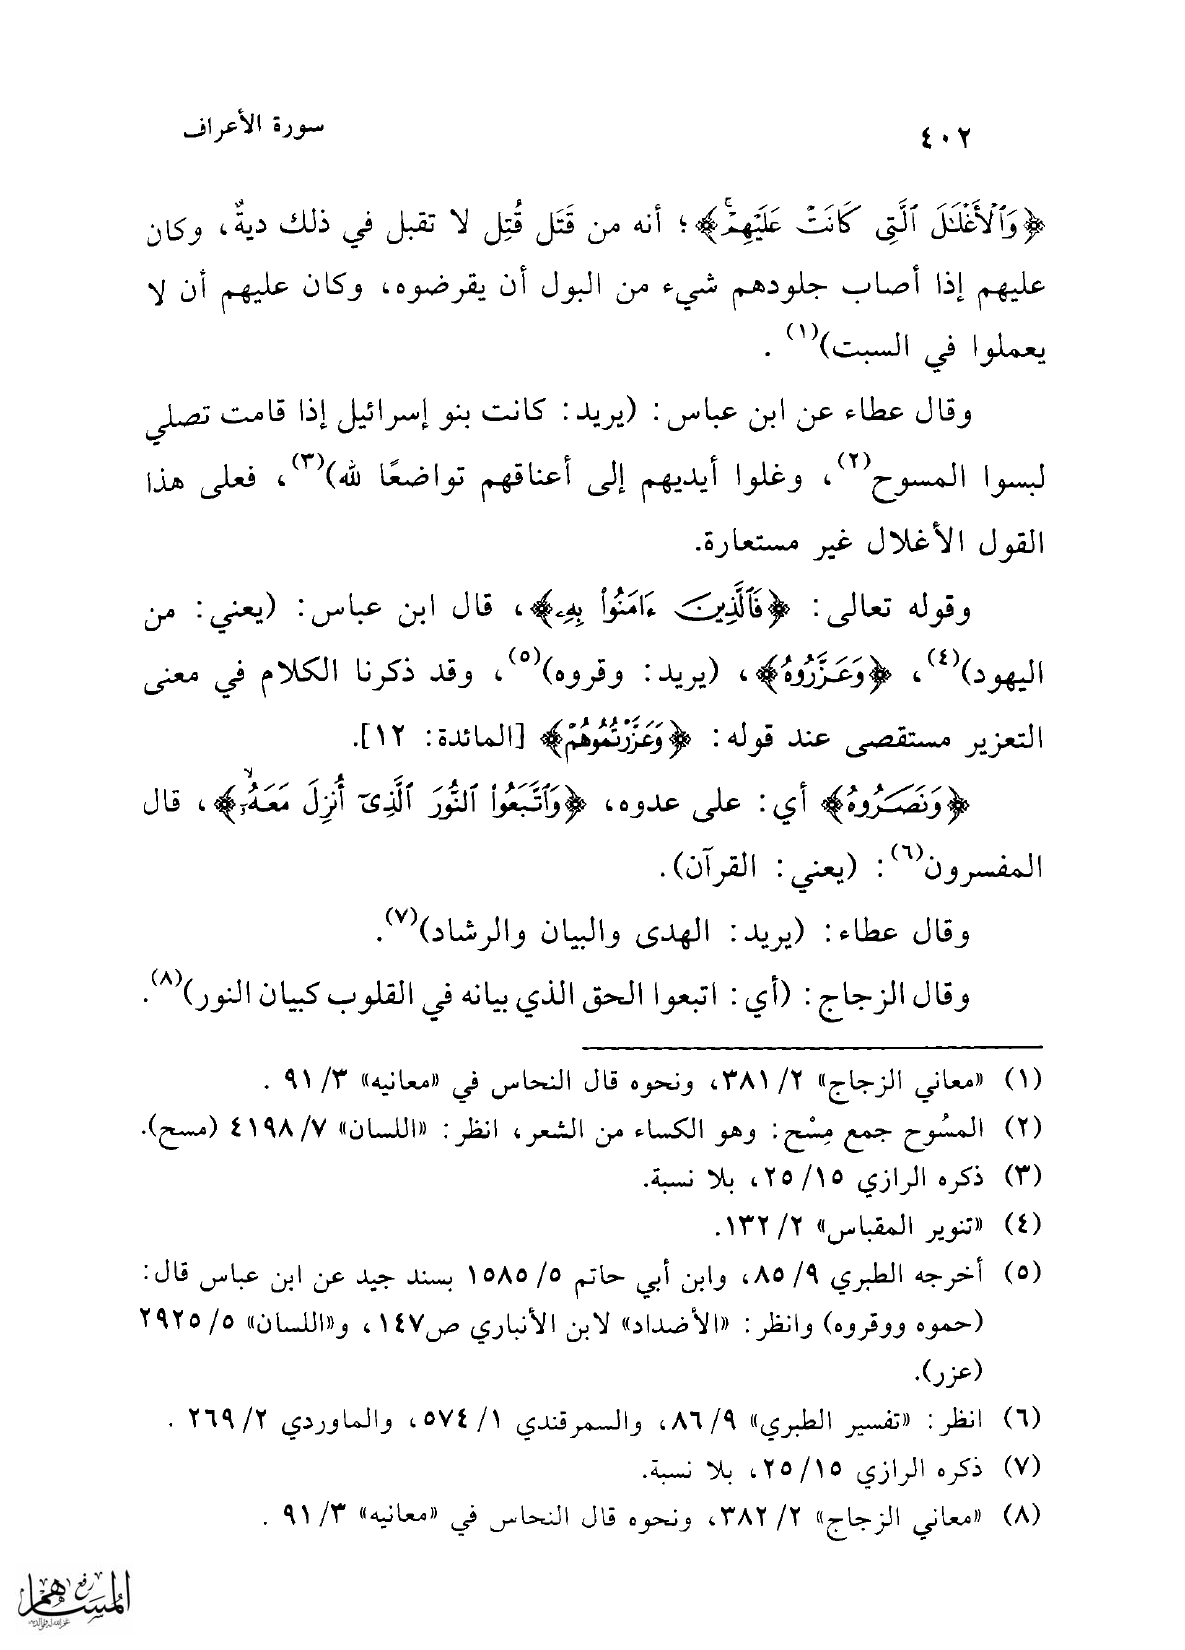 ٤٠٢
سورة الأعراف
﴿وَٱلْأَغْلَـٰلَ ٱلَّتِى كَانَتْ عَلَيْهِمْ﴾؛ أنه من قَتَل قُتِل لا تقبل في ذلك ديةٌ، وكان
عليهم إذا أصاب جلودهم شيء من البول أن يقرضوه، وكان عليهم أن لا
يعملوا في السبت)(١) .
وقال عطاء عن ابن عباس: (يريد: كانت بنو إسرائيل إذا قامت تصلي
لبسوا المسوح(٢)، وغلوا أيديهم إلى أعناقهم تواضعًا لله)(٣)، فعلى هذا
القول الأغلال غير مستعارة.
وقوله تعالى: ﴿فَٱلَّذِينَ ءَامَنُوا۟ بِهِۦ﴾، قال ابن عباس: (يعني: من
اليهود)(٤)، ﴿وَعَزَّرُوهُ﴾، (يريد: وقروه)(٥)، وقد ذكرنا الكلام في معنى
التعزير مستقصى عند قوله: ﴿وَعَزَّرْتُمُوهُمْ﴾ [المائدة: ١٢].
﴿وَنَصَرُوهُ﴾ أي: على عدوه، ﴿وَٱتَّبَعُوا۟ ٱلنُّورَ ٱلَّذِىٓ أُنزِلَ مَعَهُۥٓ﴾، قال
المفسرون(٦): (يعني: القرآن).
وقال عطاء: (يريد: الهدى والبيان والرشاد)(٧).
وقال الزجاج: (أي: اتبعوا الحق الذي بيانه في القلوب كبيان النور)(٨).
(١) «معاني الزجاج» ٢/ ٣٨١، ونحوه قال النحاس في «معانيه» ٣/ ٩١ .
(٢) المسُوح جمع مِسْح: وهو الكساء من الشعر، انظر: «اللسان» ٧/ ٤١٩٨ (مسح).
(٣) ذكره الرازي ١٥/ ٢٥، بلا نسبة.
(٤) «تنوير المقباس» ٢/ ١٣٢.
(٥) أخرجه الطبري ٩/ ٨٥، وابن أبي حاتم ٥/ ١٥٨٥ بسند جيد عن ابن عباس قال:
(حموه ووقروه) وانظر: «الأضداد» لابن الأنباري ص١٤٧، و«اللسان» ٥/ ٢٩٢٥
(عزر).
(٦) انظر: «تفسير الطبري» ٩/ ٨٦، والسمرقندي ١/ ٥٧٤، والماوردي ٢/ ٢٦٩ .
(٧) ذكره الرازي ١٥/ ٢٥، بلا نسبة.
(٨) «معاني الزجاج» ٢/ ٣٨٢، ونحوه قال النحاس في «معانيه» ٣/ ٩١ .
رفع
المساهم